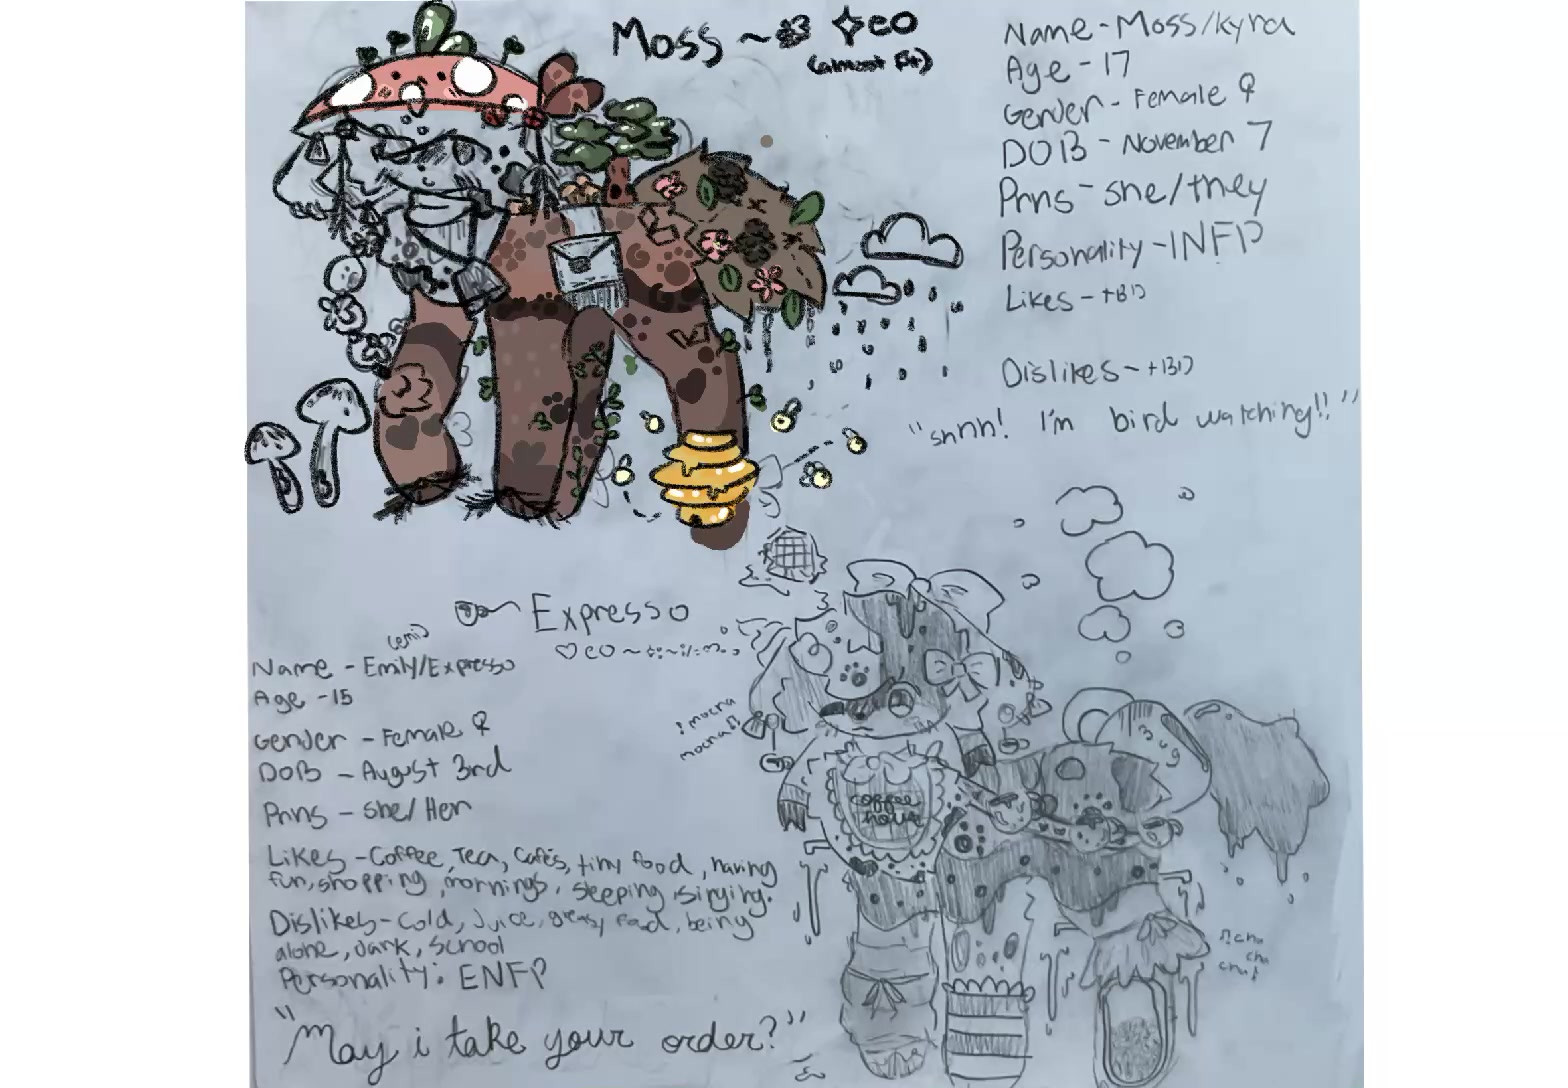 Moss ~ eo
(almost fit)
Name - Moss/kyra
Age - 17
Gender - Female ♀
DOB - November 7
Prnns - she/they
Personality - INFP
Likes - +BD
Dislikes - +BD
"shhh! I'm bird watching!!"
Expresso
♡eo~
(emi)
Name - Emily/Expresso
Age - 15
Gender - Female ♀
DOB - August 3rd
Prnns - she/Her
Likes - Coffee, Tea, Cafés, tiny food, having
fun, shopping, mornings, sleeping, singing.
Dislikes - Cold, Juice, greasy food, being
alone, dark, school
Personality: ENFP
"May i take your order?"
mocha
mocha
coffee
hour
cha
cha